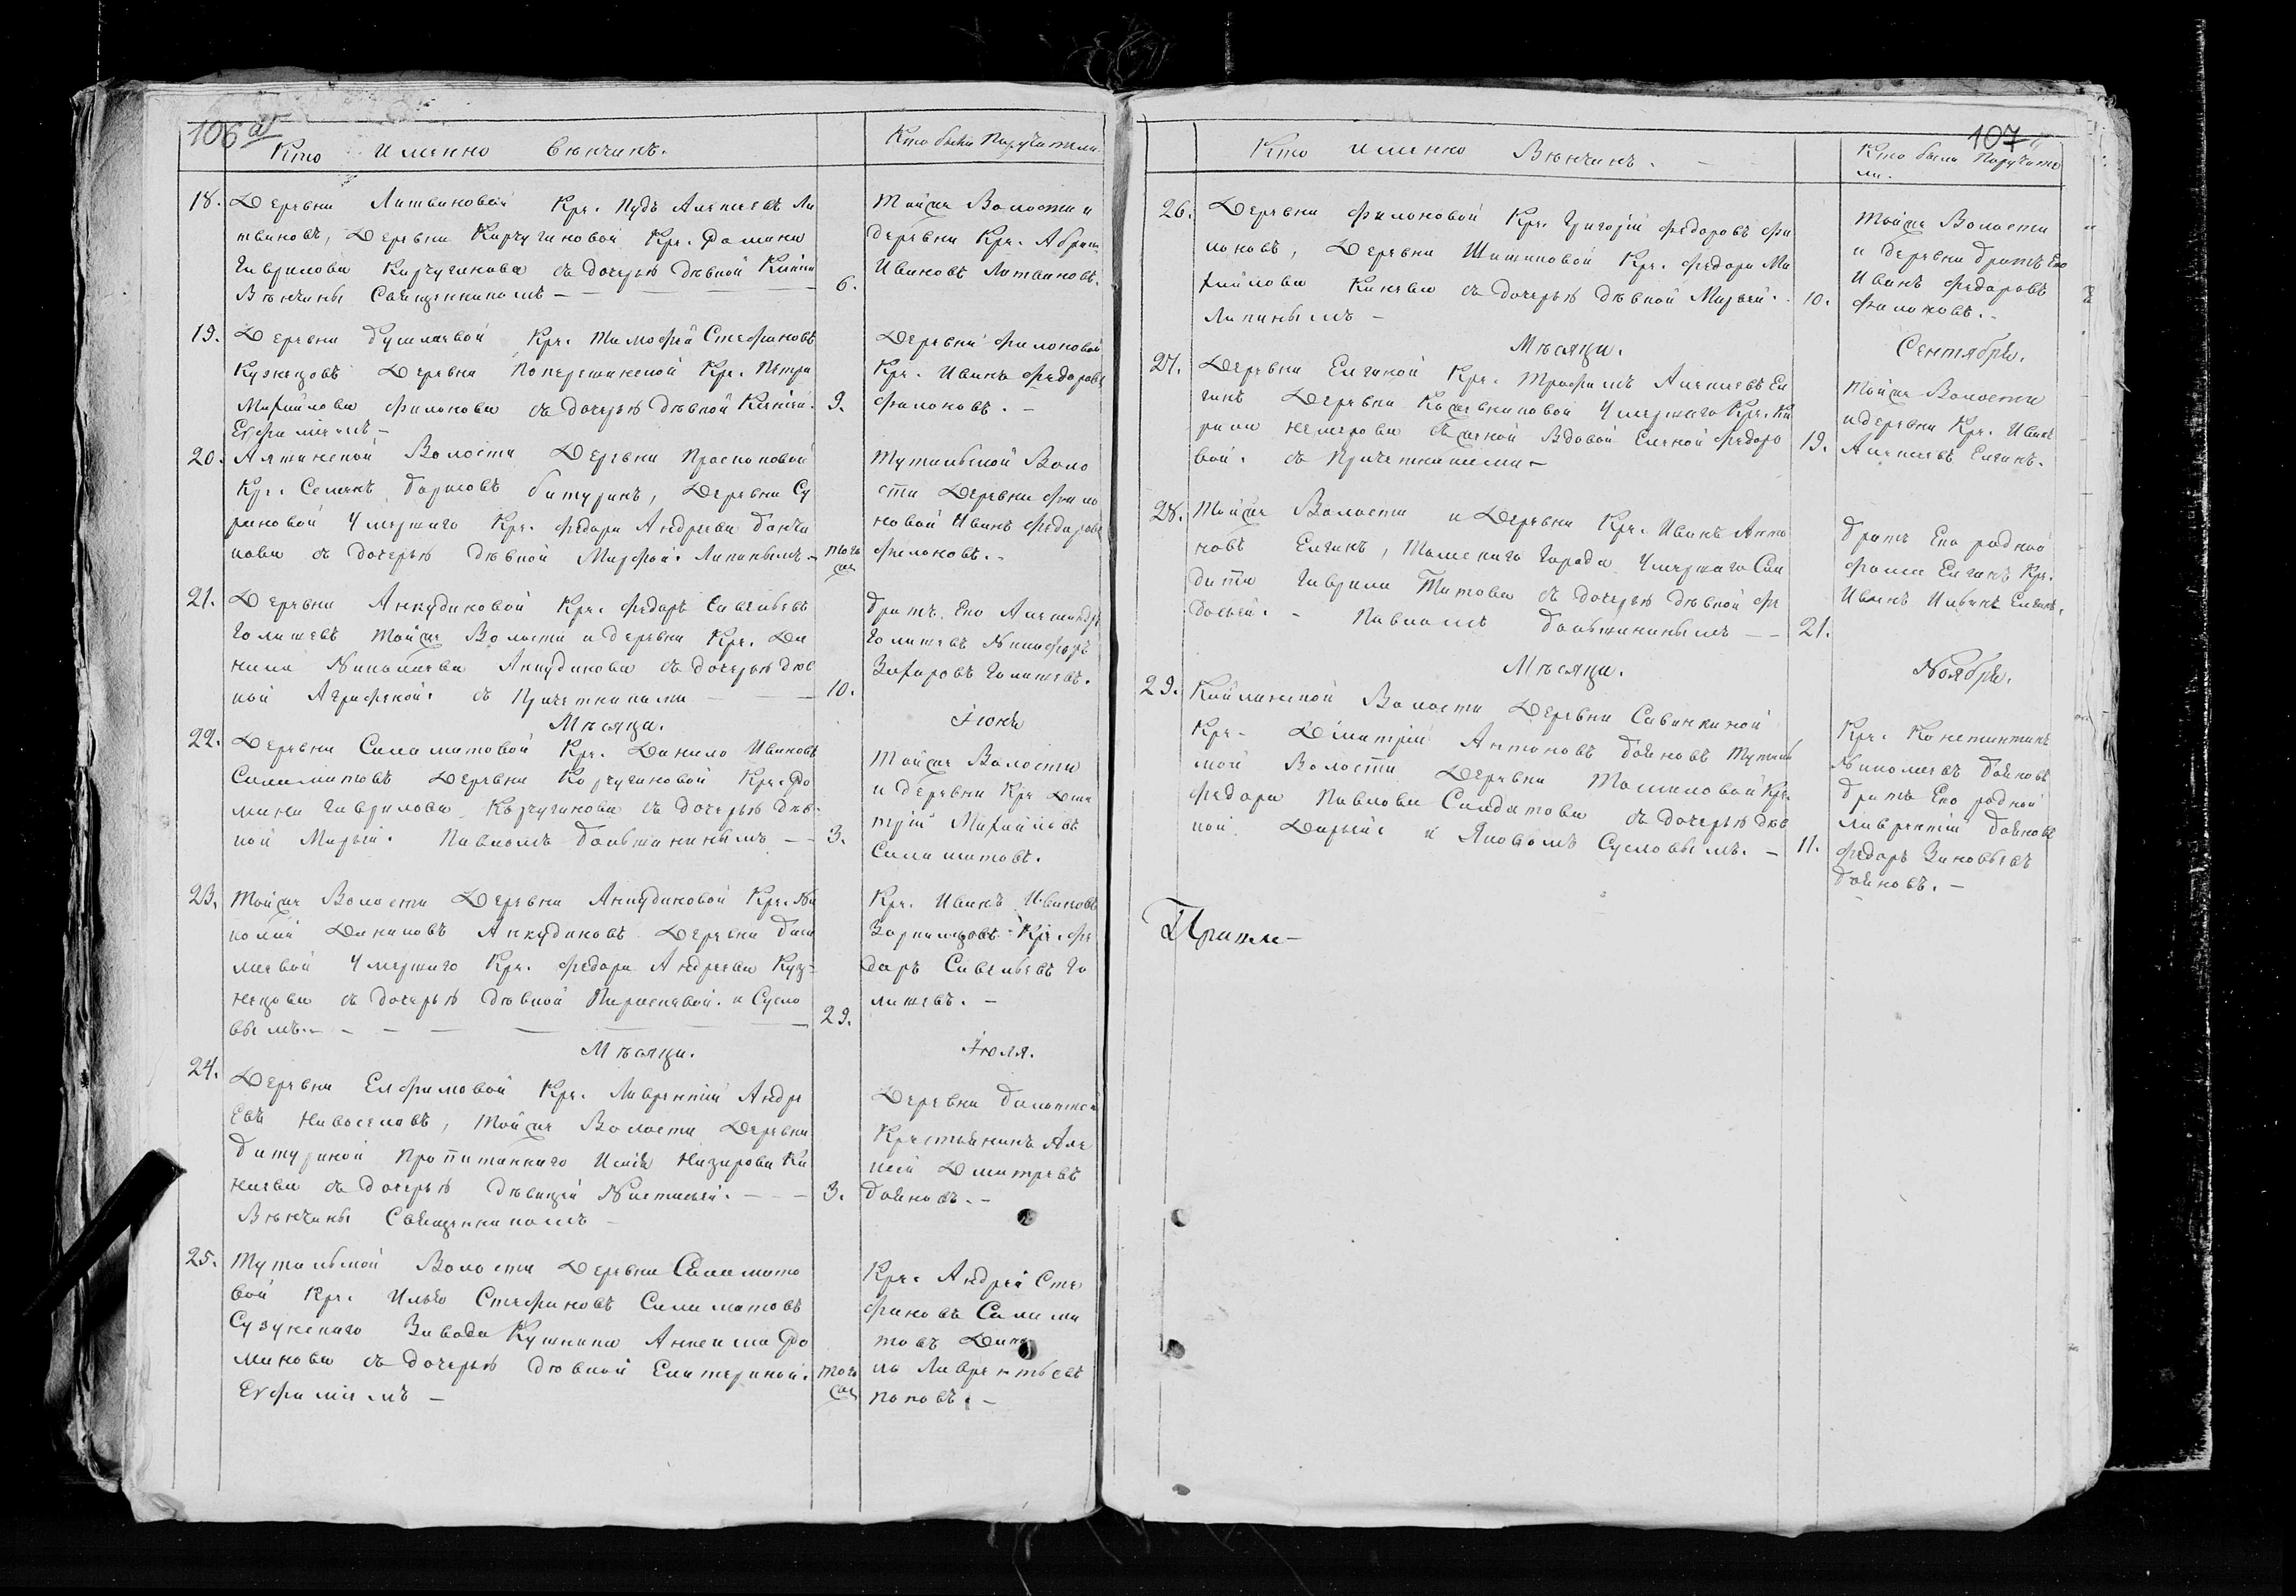 106 об
Кто именно венчанъ.
Кто были Поручители
18. Деревни Литвиновой Кре. Пудъ Алексеевъ Ли
твиновъ, Деревни Корчугановой Кре. Фомина
Гаврилова Корчуганова съ дочерью девкой
Венчаны Священникомъ —
6.
Тойже Волости и
деревни Кре. Абрамъ
Ивановъ Литвиновъ.
19. Деревни Кре. Тимофей Стефановъ
Кузнецовъ Деревни Поперешинской Кре. Петра
Михайлова Филонова съ дочерью девкой
Ехфимiемъ —
9.
Деревни Филоновой
Кре. Иванъ Федоровъ
Филоновъ. —
20. Волости Деревни Проскоковой
Кре. Семенъ Борисовъ Батуринъ, Деревни Су
рановой Умершаго Кре. Федора Андреева
нова съ дочерью девкой Марфой. Лапинымъ —
тогоже
Тутальской Воло
сти Деревни Фило
новой Иванъ Федоровъ
Филоновъ. —
21. Деревни Анкудиновой Кре. Федоръ Савельевъ
Голишевъ Тойже Волости и деревни Кре. Да
нила Николаева Анкудинова съ дочерью дев
кой Аграфеной. съ Причетниками —
10.
братъ Его Александръ
Голишевъ Никифоръ
Захаровъ Голишевъ.
Месяца. Iюнь
22. Деревни Саламатовой Кре. Данило Ивановъ
Саламатовъ Деревни Корчугановой Кре. Фо
мина Гаврилова Корчуганова съ дочерью дев
кой Марьей. Павломъ Большанинымъ —
3.
Тойже Волости
и деревни Кре Дми
трiй Михайловъ
Саламатовъ.
23. Тойже Волости Деревни Анкудиновой Кре. Ни
колай Даниловъ Анкудиновъ Деревни
Умершаго Кре. Федора Андреева Куз-
нецова съ дочерью девкой Парасковой. и Сусло
вымъ. —
29.
Кре. Иванъ Ивановъ
Кре. Фе
доръ Савельевъ Го
лишевъ. —
Месяца. Iюля.
24. Деревни Елфимовой Кре. Лаврентiй Андре
евъ Новоселовъ, Тойже Волости Деревни
Батуриной Пропитаннаго Исая Назарова Ка
наева съ дочерью девицей Настасьей. —
Венчаны Священникомъ —
3.
Деревни
Крестьянинъ Але
ксей Дмитревъ
Бойновъ. —
25. Тутальской Волости Деревни Саламато
вой Кре. Илья Стефановъ Саламатовъ
Сузунскаго Завода Фо
минова съ дочерью девкой Екатериной.
Ехфимiемъ —
тогоже
Кре. Андрей Сте
фановъ Салама
товъ Дани
ла Лаврентьевъ
Поповъ. —
107
Кто именно Венчанъ. —
Кто были Поручите
ли.
26. Деревни Филоновой Кре. Григорiй Федоровъ Фи
лоновъ, Деревни Шитиковой Кре. Федора Ми
хайлова Канаева съ дочерью девкой Марьей.
Лапинымъ —
10.
Тойже Волости
и деревни братъ Его
Иванъ Федоровъ
Филоновъ. —
Месяца. Сентября.
27. Деревни Елгиной Кре. Трофимъ Алексеевъ Ел
гинъ Деревни Кожевниковой Умершаго Кре. Ки
рила Немерова съ женой Вдовой Еленой Федоро
вой. съ Причетниками —
19.
Тойже Волости
и деревни Кре. Иванъ
Алексеевъ Елгинъ.
28. Тойже Волости и Деревни Кре. Иванъ Анто
новъ Елгинъ, Томскаго Города Умершаго Сол
дата Гаврила Титова съ дочерью девкой Фе
досьей. — Павломъ Большанинымъ —
21.
братъ Его родной
Фома Елгинъ Кре.
Иванъ Елгинъ.
Месяца. Ноября.
29. Кайлинской Волости Деревни Савинкиной
Кре. Димитрiй Антоновъ Бойновъ Туталь
ской Волости Деревни Томиловой Кре.
Федора Павлова Солдатова съ дочерью дев
кой Дарьей и Яковомъ Сусловымъ. —
11.
Кре. Константинъ
Николаевъ Бойновъ
братъ Его родной
Лаврентiй Бойновъ
Федоръ Зиновьевъ
Бойновъ. —